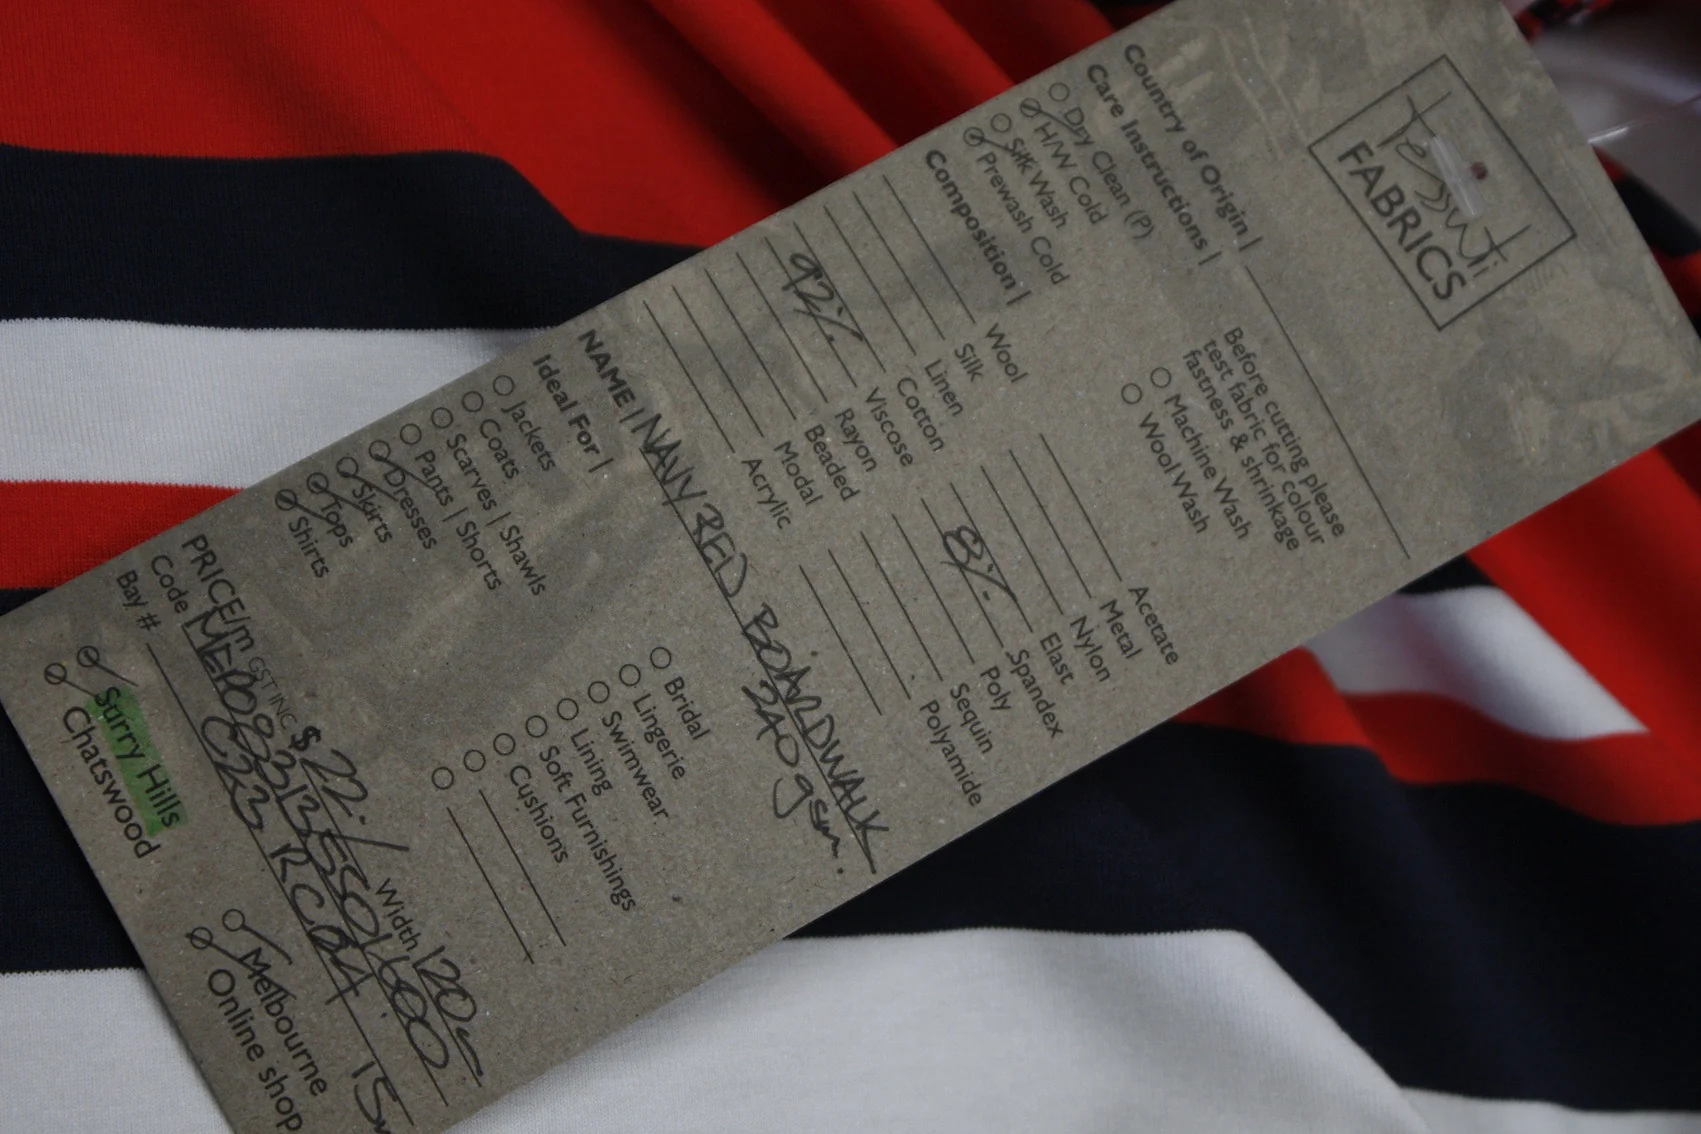 Tessuti
FABRICS
Country of Origin |
Care Instructions |
Before cutting please
test fabric for colour
fastness & shrinkage
Dry Clean (P)
H/W Cold
Silk Wash
Prewash Cold
Machine Wash
Wool Wash
Composition |
Wool
Silk
Linen
Cotton
92% Viscose
Rayon
Beaded
Modal
Acrylic
Acetate
Metal
Nylon
Elast
8% Spandex
Poly
Sequin
Polyamide
NAME | NAVY RED BOARDWALK
240gsm.
Ideal For |
Jackets
Coats
Scarves | Shawls
Pants | Shorts
Dresses
Skirts
Tops
Shirts
Bridal
Lingerie
Swimwear
Lining
Soft Furnishings
Cushions
PRICE/m GST INC $22.- Width 120
Code
Bay #
Surry Hills
Chatswood
Melbourne
Online shop